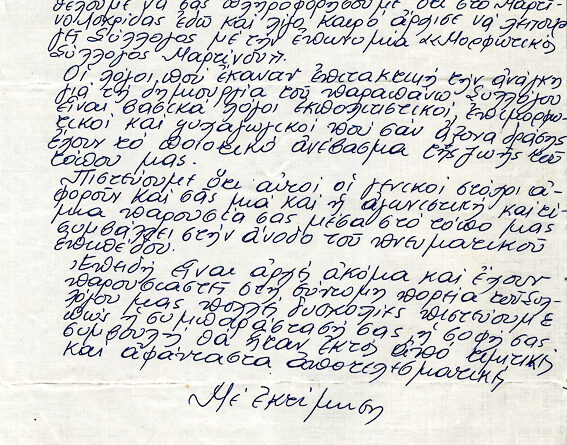 θέλουμε νά σᾶς πληροφορήσουμε ὅτι στό Μαρτῖ-
νο Λοκρίδας ἐδῶ καί λίγο καιρό ἄρχισε νά λειτουρ-
γεῖ Σύλλογος μέ τήν ἐπωνυμία «Μορφωτικός
Σύλλογος Μαρτίνου».
Οἱ λόγοι πού ἔκαναν ἐπιτακτική τήν ἀνάγκη
γιά τή δημιουργία τοῦ παραπάνω Συλλόγου
εἶναι βασικά λόγοι ἐκπολιτιστικοί, ἐπιμορφω-
τικοί καί ψυχαγωγικοί πού σάν ἄξονα δράσης
ἔχουν τό ποιοτικό ἀνέβασμα τῆς ζωῆς τοῦ
τόπου μας.
Πιστεύουμε ὅτι αὐτοί οἱ γενικοί στόχοι ἀ-
φοροῦν καί σᾶς μιά καί ἡ ἀγωνιστική καί τί-
μια παρουσία σας μέσα στό τόπο μας
συμβάλλει στήν ἄνοδο τοῦ πνευματικοῦ
ἐπιπέδου.
Ἐπειδή εἶναι ἀρχή ἀκόμα καί ἔχουν
παρουσιαστεῖ στή σύντομη πορεία τοῦ Συλ-
λόγου μας πολλές δυσκολίες πιστεύουμε
πώς ἡ συμπαράστασή σας, ἡ σοφή σας
συμβουλή θά ἦταν ἐκτός ἀπό τιμητική
καί ἀφάνταστα ἀποτελεσματική.
Μέ ἐκτίμηση